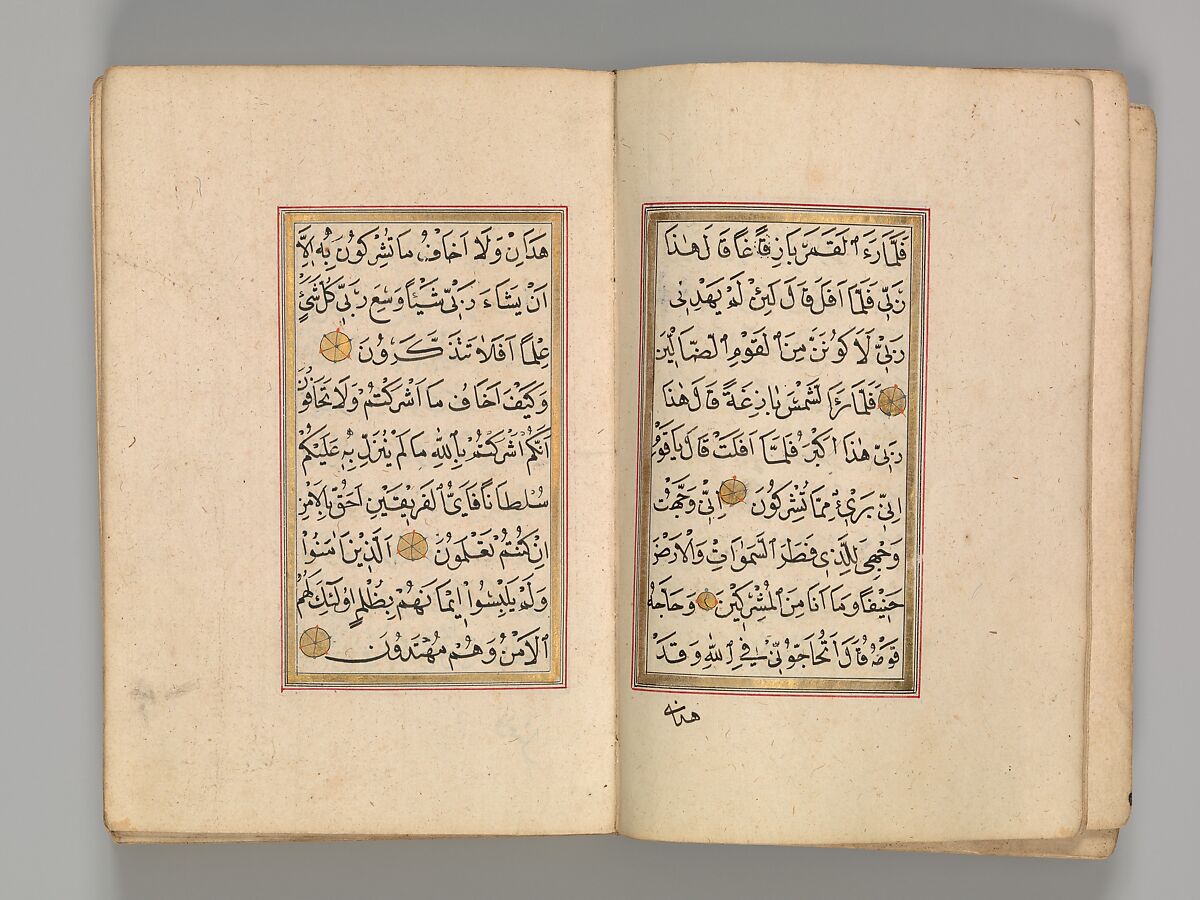 فَلَمَّا رَءَ الْقَمَرَ بَازِقًا غًا قَالَ هٰذَا
رَبّ۪ي فَلَمَّا اَفَلَ قَالَ لَئِنْ لَمْ يَهْدِن۪ي
رَبّ۪ي لَاَ كُونَنَّ مِنَ الْقَوْمِ الضَّالّ۪ينَ
فَلَمَّا رَاَ لشَّمْسَ بَازِغَةً قَالَ هٰذَا
رَبّ۪ي هٰذَا اَكْبَرُ فَلَمَّا اَفَلَتْ قَالَ يَاقَوْمِ
اِنّ۪ي بَر۪يءٌ مِمَّا تُشْرِكُونَ اِنّ۪ي وَجَّهْتُ
وَجْهِيَ لِلَّذ۪ي فَطَرَ السَّمٰوَاتِ وَالْاَرْضَ
حَن۪يفًا وَمَا اَنَا مِنَ الْمُشْرِك۪ينَ وَحَاجَّهُ
قَوْمُهُ قَالَ اَتُحَاجُّوۤنّ۪ي فِي اللّٰهِ وَقَدْ
هدان
هَدَانِ وَلَا اَخَافُ مَا تُشْرِكُونَ بِه۪ اِلَّا
اَنْ يَشَاءَ رَبّ۪ي شَيْئًا وَسِعَ رَبّ۪ي كُلَّ شَيْءٍ
عِلْمًا اَفَلَا تَتَذَكَّرُونَ
وَكَيْفَ اَخَافُ مَا اَشْرَكْتُمْ وَلَا تَخَافُونَ
اَنَّكُمْ اَشْرَكْتُمْ بِاللّٰهِ مَا لَمْ يُنَزِّلْ بِه۪ عَلَيْكُمْ
سُلْطَانًا فَاَيُّ الْفَر۪يقَيْنِ اَحَقُّ بِالْاَمْنِ
اِنْ كُنْتُمْ تَعْلَمُونَ اَلَّذ۪ينَ اٰمَنُوا
وَلَمْ يَلْبِسُوا ا۪يمَانَهُمْ بِظُلْمٍ اُولٰۤئِكَ لَهُمُ
الْاَمْنُ وَهُمْ مُهْتَدُونَ